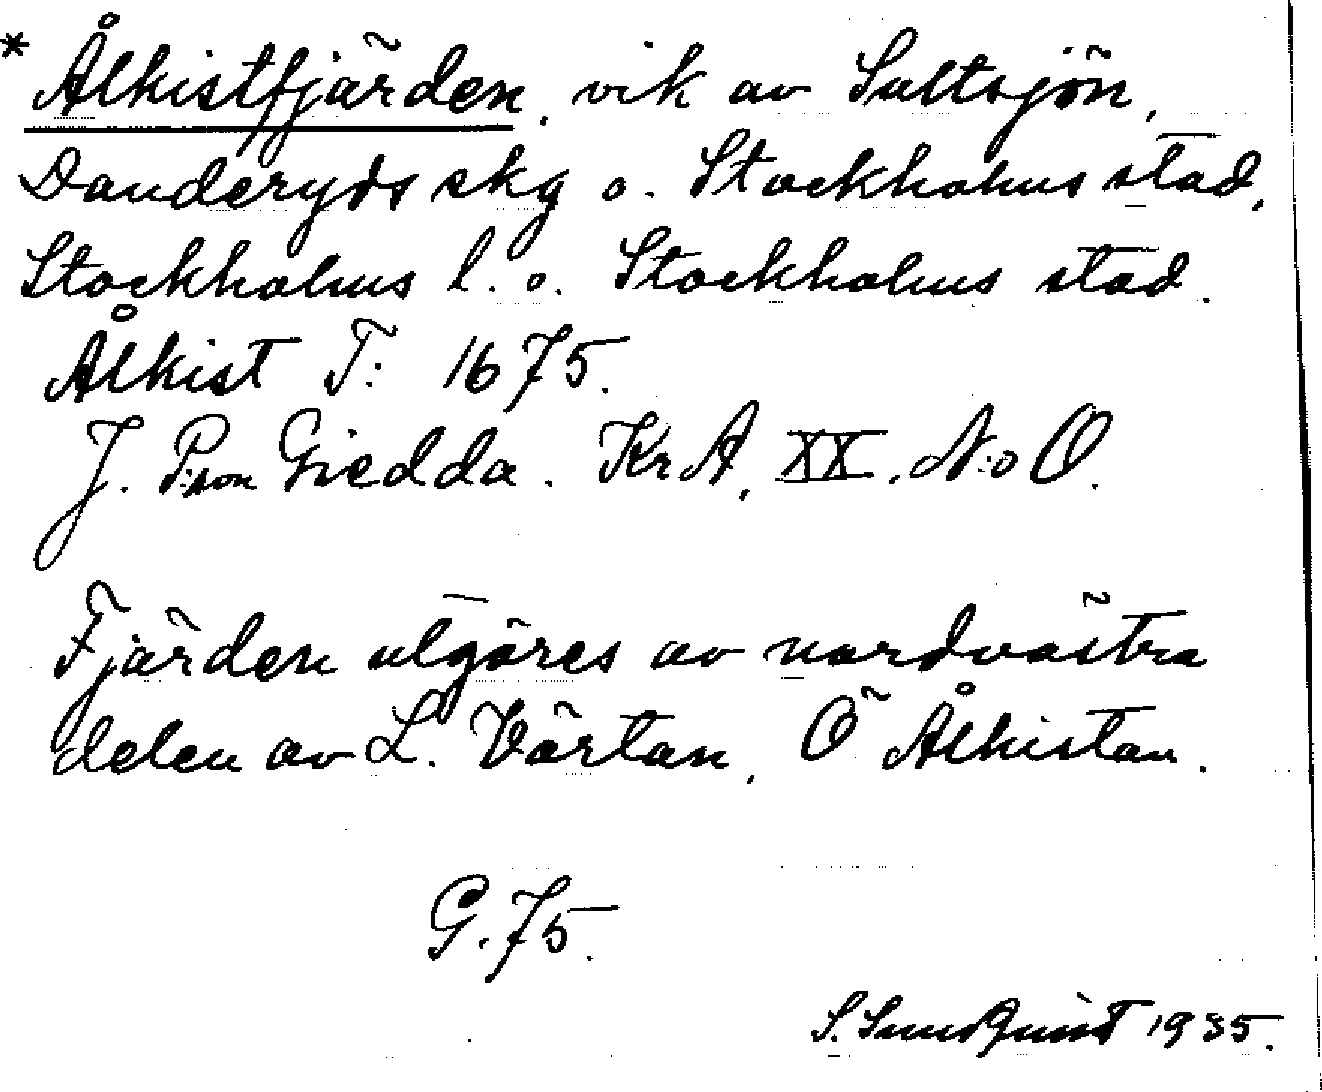 * Ålkistfjärden, vik av Saltsjön,
Danderyds skg o. Stockholms stad,
Stockholms l. o. Stockholms stad.
Ålkist F: 1675.
J. P:son Giedda. KrA, XX, N:o O.
Fjärden utgöres av nordvästra
delen av L. Värtan, Ö Ålkistan.
G. 75.
S. Sundquist 1935.